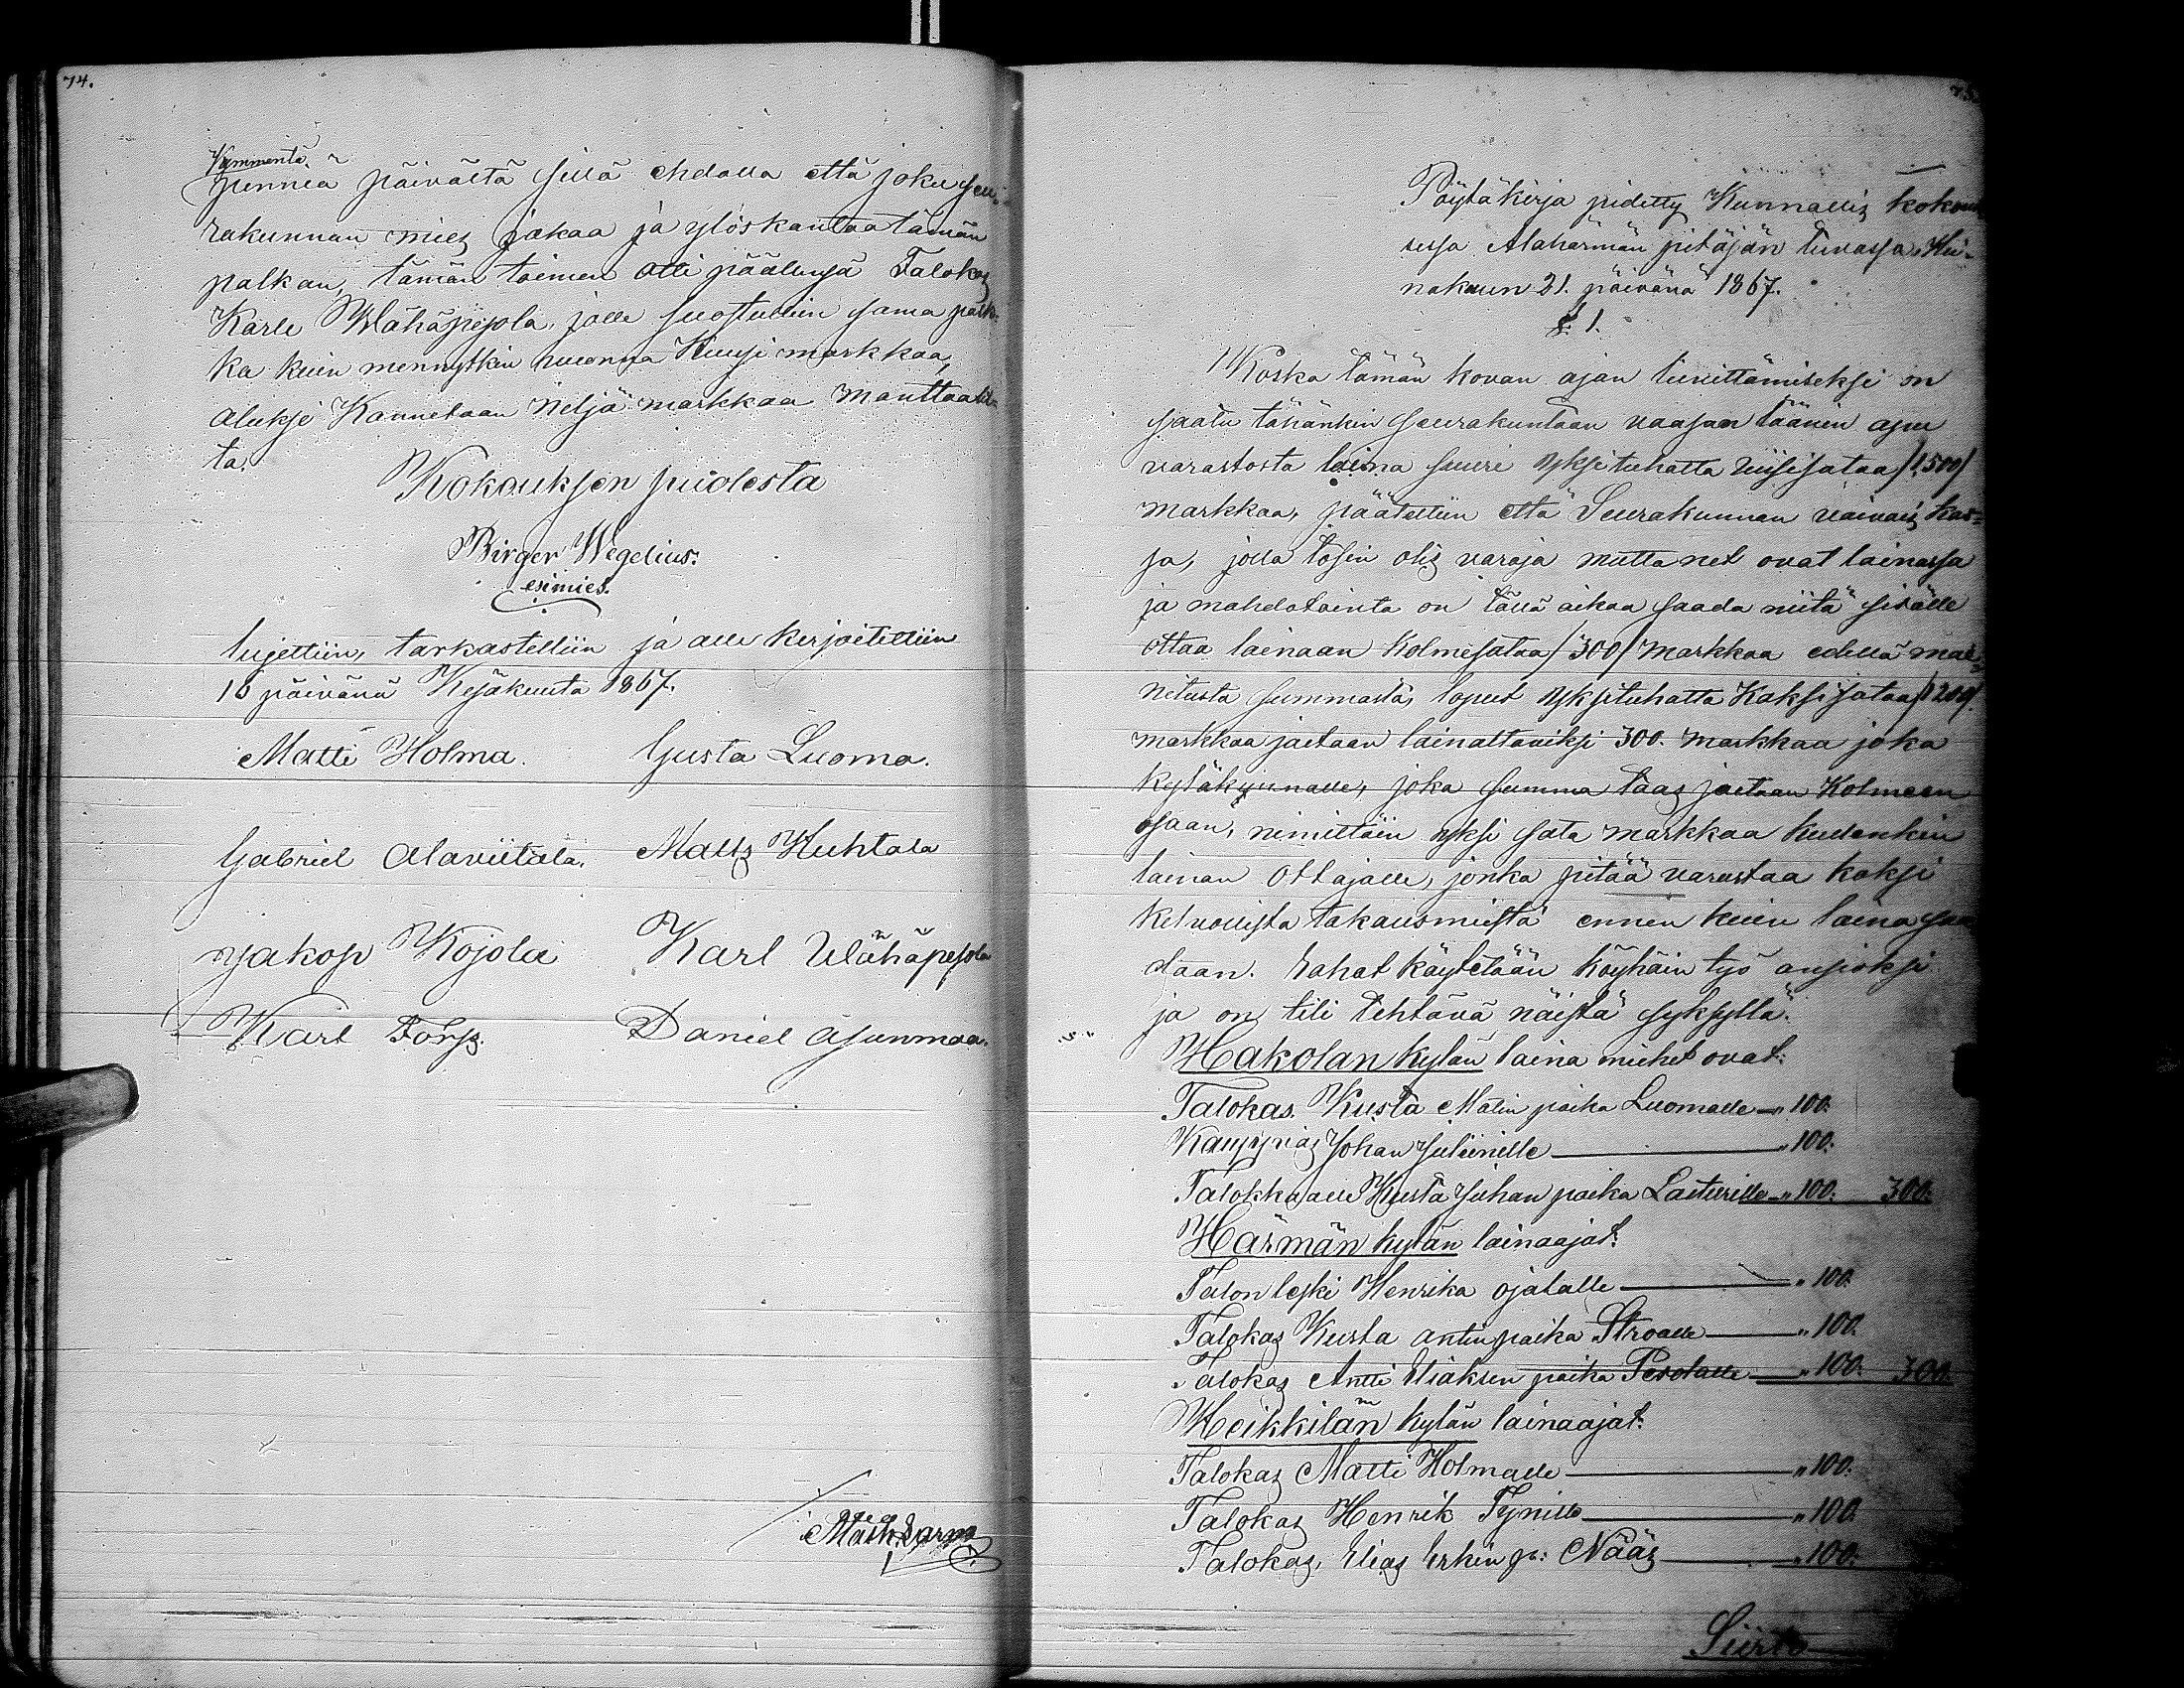 74.
Kymmentä
penniä päivältä sillä ehdolla että joku seu-
rakunnan mies jakaa ja ylöskantaa tämän
palkan, tämän toimen otti päällensä Talokas
Karle Wähäpesola, jolle suostuttiin sama palk-
ka kuin mennytkin vuonna Kuusi markkaa,
aluksi Kannetaan Neljä markkaa Manttaalil-
ta.
Kokouksen puolesta
Birger Wegelius.
esimies.
lujettiin, tarkastelliin ja alle kirjoitettiin
16 päivänä Kesäkuuta 1867.
Matti Holma. Gusta Luoma.
Gabriel Alaviitala. Matts Huhtala
Jakop Kojola Karl Wähäpesola
Karl Fors. Daniel Asunmaa.
75.
Pöytäkirja pidetty Kunnallis kokouk
sessa Alahärmän pitäjän tuvassa, Hei-
näkuun 21. päivänä 1867.
§. 1.
Koska tämän kovan ajan lievittämiseksi on
saatu tähänkin Seurakuntaan vaasan läänin apu
varastosta laina suuri yksituhatta viisisataa /1500/
markkaa, päätettiin että Seurakunnan vaivais kas-
sa, jolla tosin olis varoja mutta net ovat lainassa
ja mahdotointa on tällä aikaa saada niitä sisälle
ottaa lainaan Kolmesataa /300/ markkaa edellä mai-
nitusta summasta, loput yksituhatta Kaksisataa /1200/.
markkaa jaetaan lainattaviksi 300. markkaa joka
kyläkunnalle, joka summa taas jaetaan Kolmeen
osaan, nimittäin yksi sata markkaa kudenkin
lainan ottajalle, jonka pitää varustaa kaksi
kelvollista takausmiestä ennen kuin laina saa
daan. Rahat käytetään köyhäin työ ansioksi
ja on tili tehtävä näistä syksyllä.
Hakolan kylän laina miehet ovat:
Talokas. Kusta Matin poika Luomalle „ 100:
Kauppias Johan Juliinille „ 100:
Talokkaalle Kusta Juhan poika Laiturille „ 100: 300:
Härmän kylän lainaajat:
Talon leski Henrika Ojatalle „ 100:
Talokas Kusta Antinpoika Stroalle „ 100.
Talokas Antti Eliaksen poika Pesolalle „ 100: 300.
Heikkilän kylän lainaajat:
Talokas Matti Holmalle „ 100:
Talokas Henrik Tynille „ 100
Talokas, Elias Erkin p: Nääs „ 100:
Siirto